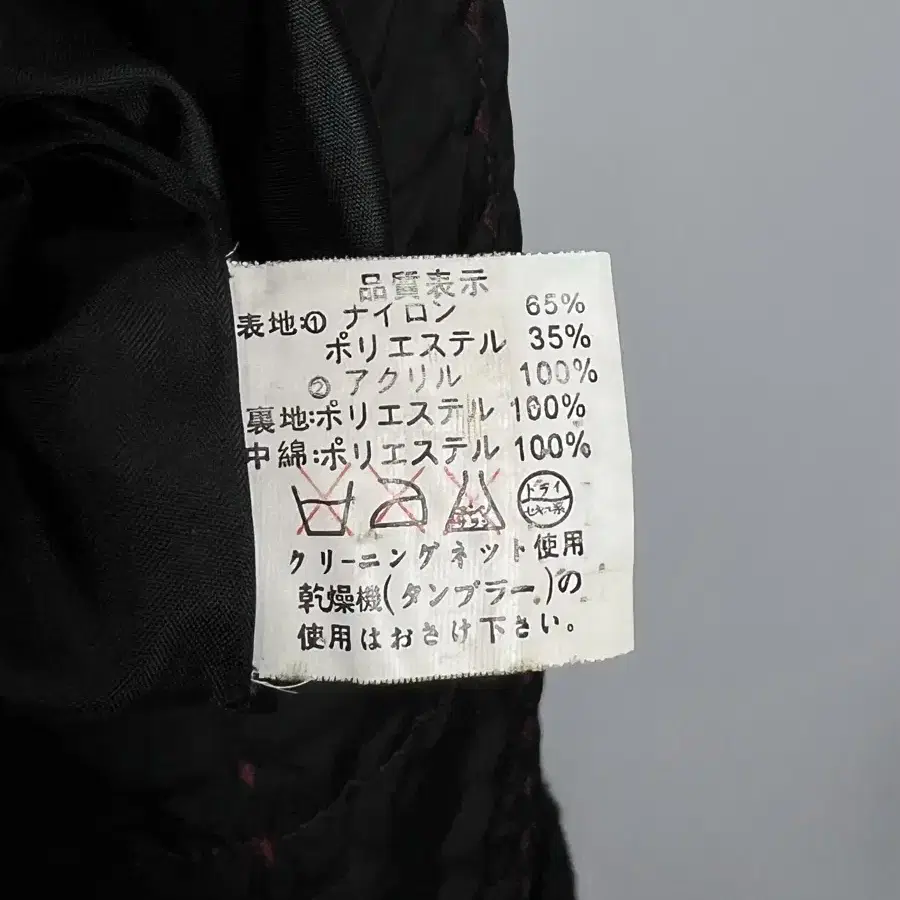 品質表示
表地:① ナイロン 65%
ポリエステル 35%
② アクリル 100%
裏地:ポリエステル 100%
中綿:ポリエステル 100%
ドライ
セキユ系
クリーニングネット使用
乾燥機(タンブラー)の
使用はおさけ下さい。